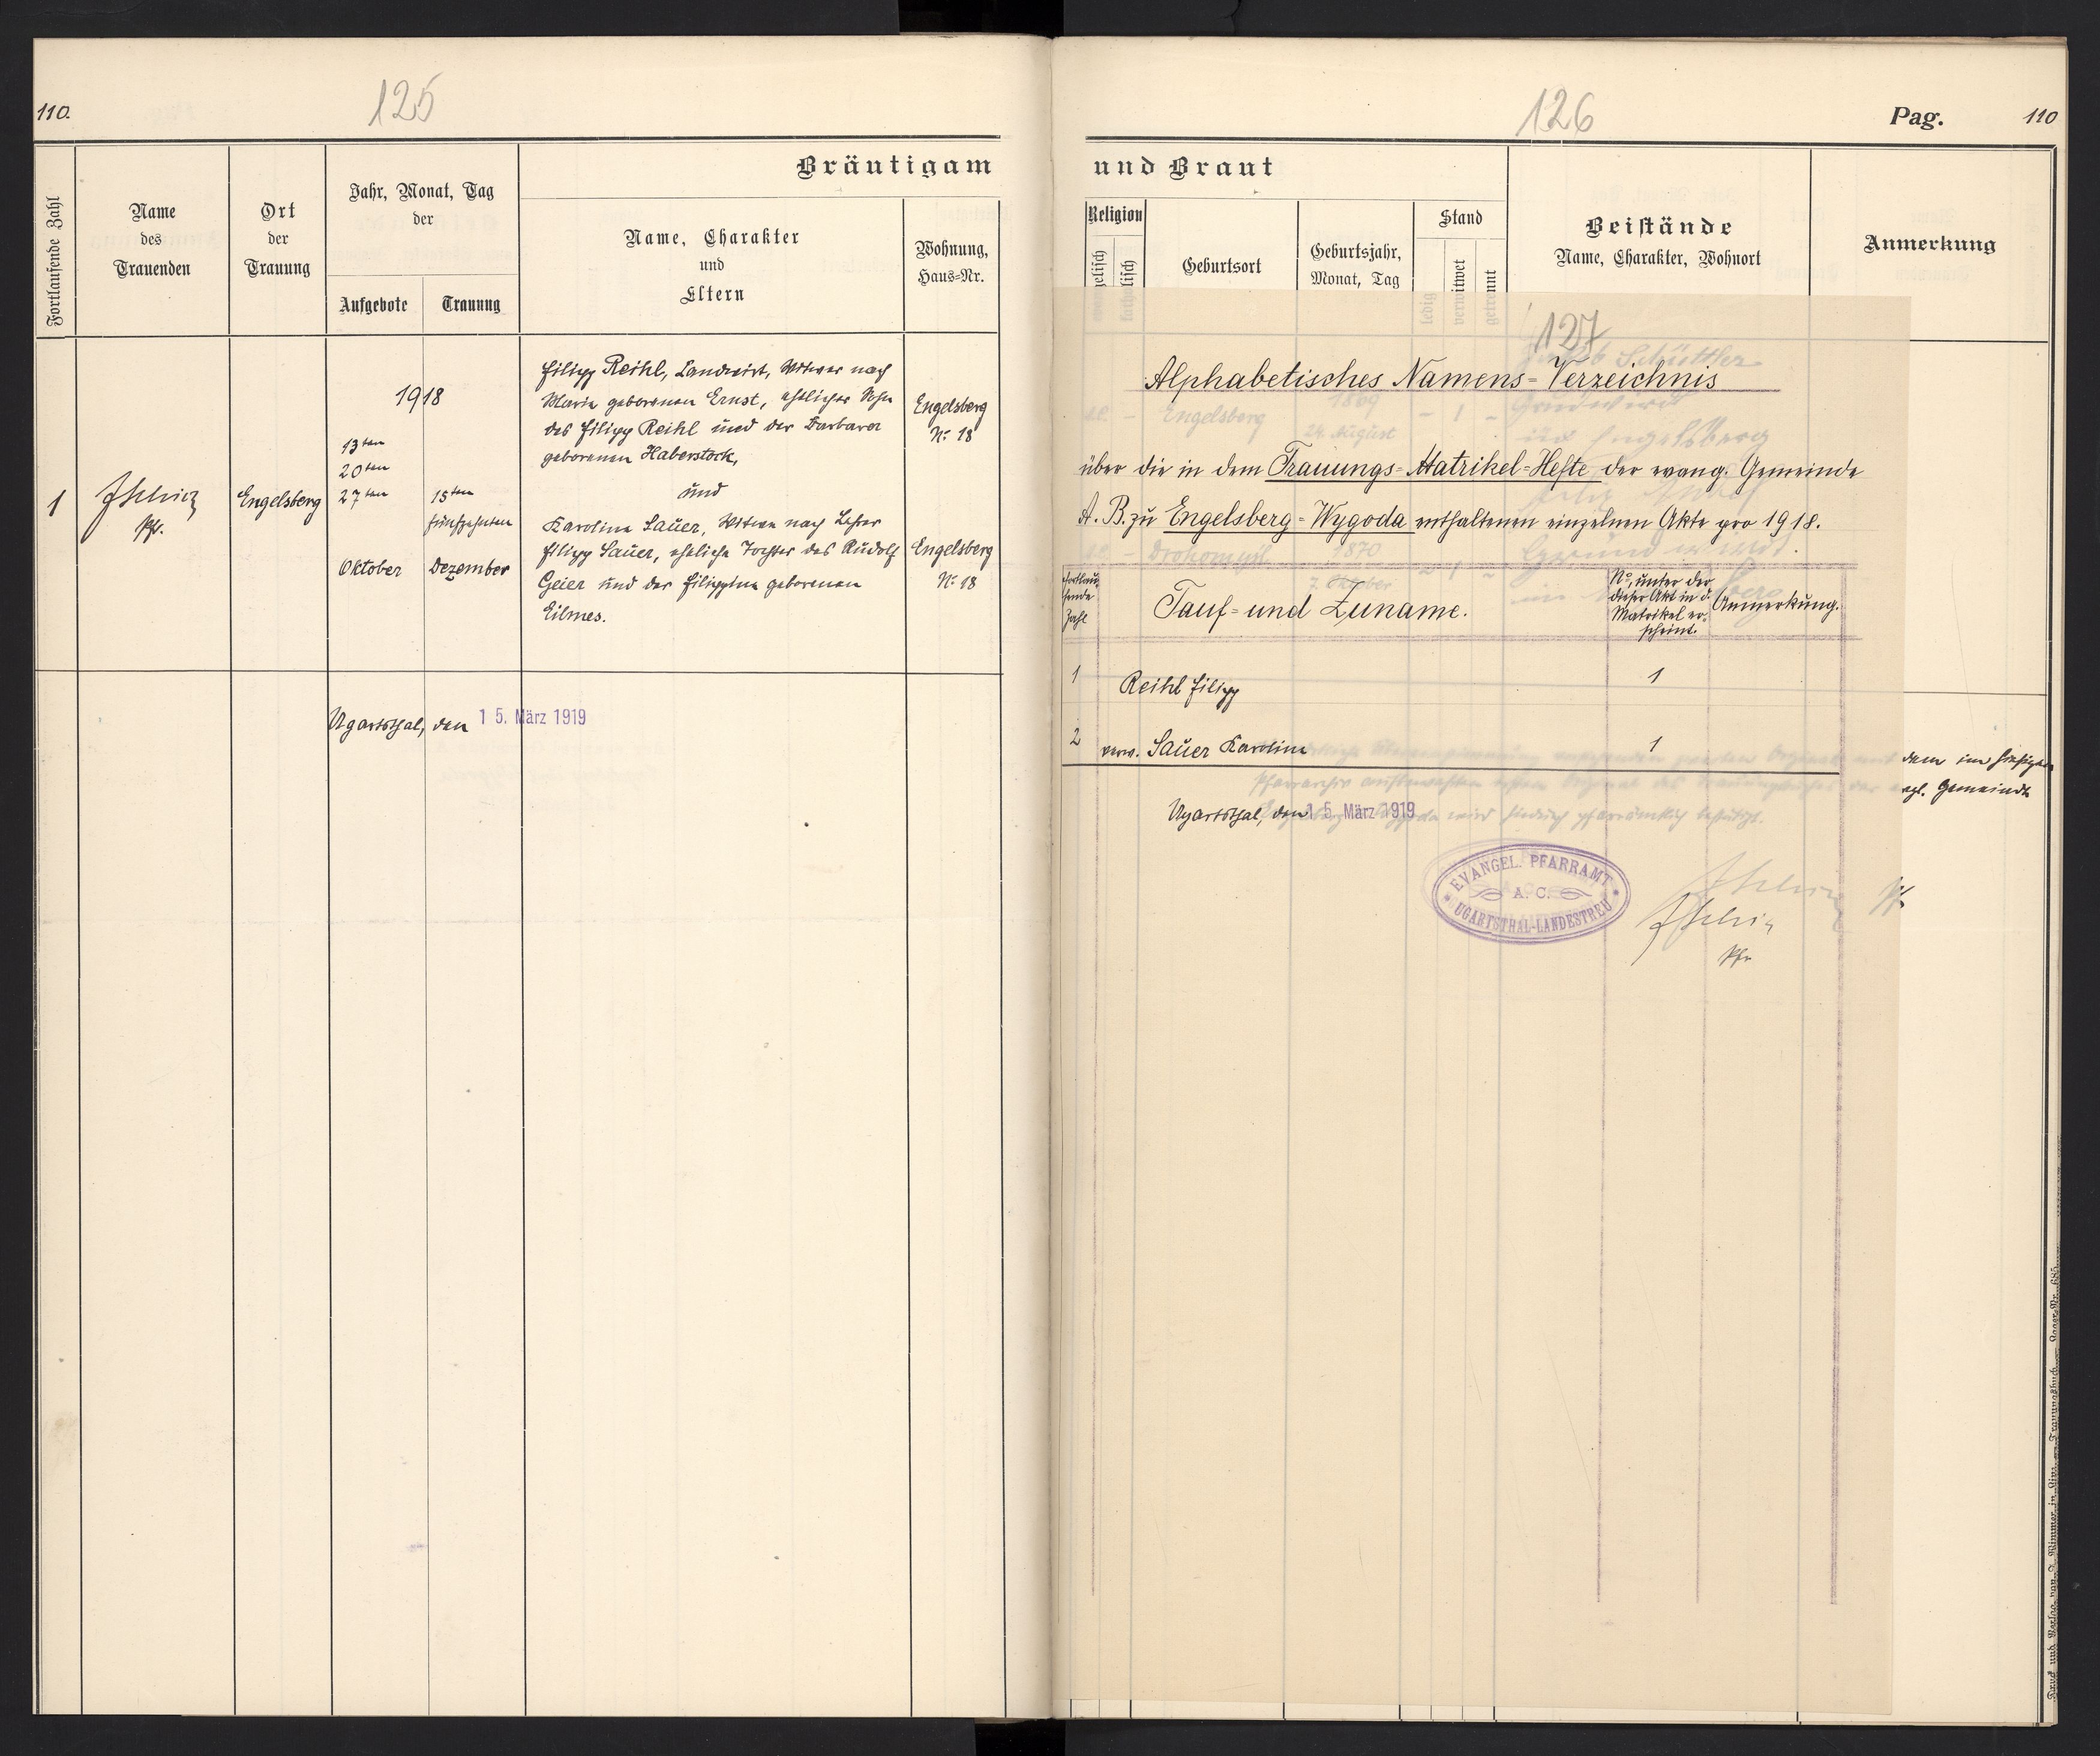 110.
125
Bräutigam
Fortlaufende Zahl
Name
des
Trauenden
Ort
der
Trauung
Jahr, Monat, Tag
der
Aufgebote
Trauung
Name, Charakter
und
Eltern
Wohnung,
Haus=Nr.
1
Pfr.
Engelsberg
1918
13ten
20ten
27ten
Oktober
15ten
fünfzehnten
Dezember
Filipp Reihl, Landwirt, Witwer nach
Maria geborenen Ernst, ehelicher Sohn
des Filipp Reihl und der Barbara
geborenen Haberstock,
und
Karolina Sauer, Witwe nach Lehrer
Filipp Sauer, eheliche Tochter des Rudolf
Geier und der Filippina geborenen
Eilmes.
Engelsberg
No 18
Engelsberg
No 18
Ugartsthal, den 15. März 1919
126
Pag. 110
und Braut
Religion
Geburtsort
Geburtsjahr,
Monat, Tag
Stand
ledig
verwitwet
getrennt
Beistände
Name, Charakter, Wohnort
Anmerkung
127
Alphabetisches Namens=Verzeichnis
über die in dem Trauungs=Matrikel=Hefte der evang. Gemeinde
A. B. zu Engelsberg=Wygoda enthaltenen einzelnen Akte pro 1918.
Fortlau=
fende
Zahl
Tauf=und Zuname.
No, unter der
dieser Akt in d.
Matrikel er=
scheint.
Anmerkung.
1 Reihl Filipp 1
2 verw. Sauer Karolina 1
dem im hiesigen
evgl. Gemeinde
Ugartsthal, den 15. März 1919
EVANGEL. PFARRAMT
A. C.
UGARTSTHAL-LANDESTREU
Pfr